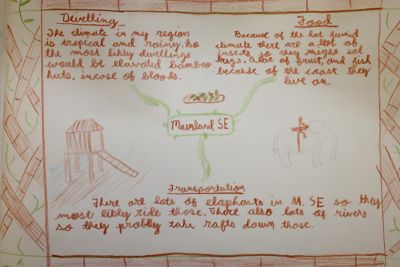 Dwelling
The climate in my region
is tropical and rainy. So
the most likly dwellings
would be elavated bamboo
huts, incase of floods.
Food
Because of the hot humid
climate there are a lot of
insects so they might eat
bugs. A lot of fruit, and fish
because of the coast they
live on.
Mainland SE
Transportation
There are lots of elaphants in M. SE so they
most likly ride those. There also lots of rivers
so they probbly take rafts down those.